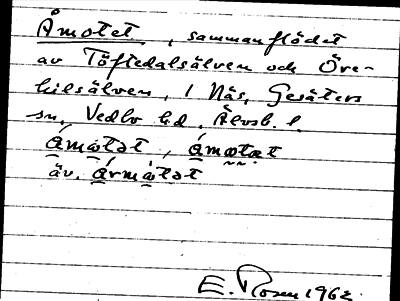 Åmotet, sammanflödet
av Töftedalsälven och Öre-
kilsälven, i Näs, Gesäters
sn, Vedbo hd. Älvsb. l.
ámo̱tət, 
äv. 
E. Rosen 1962